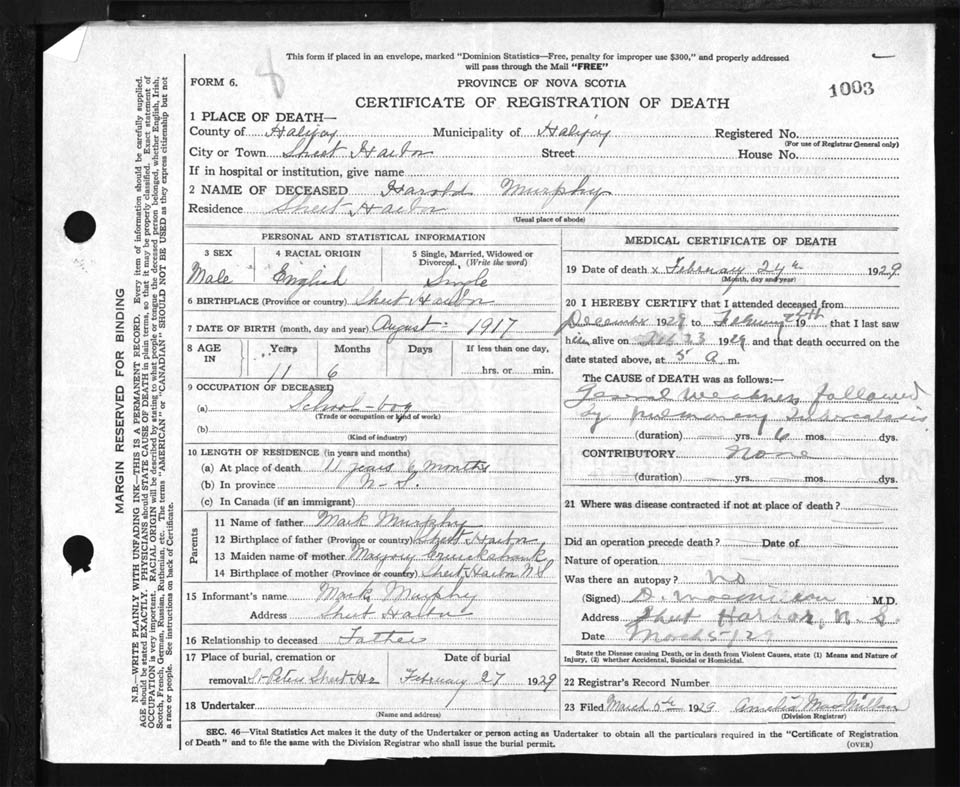 This form if placed in an envelope, marked "Dominion Statistics—Free, penalty for improper use $300," and properly addressed
will pass through the Mail "FREE"
FORM 6.
8
PROVINCE OF NOVA SCOTIA
1003
CERTIFICATE OF REGISTRATION OF DEATH
MARGIN RESERVED FOR BINDING
N.B.—WRITE PLAINLY WITH UNFADING INK—THIS IS A PERMANENT RECORD. Every item of information should be carefully supplied.
AGE should be stated EXACTLY. PHYSICIANS should STATE CAUSE OF DEATH in plain terms, so that it may be properly classified. Exact statement of
OCCUPATION is very important. RACIAL ORIGIN will be described by stating to what people or tongue the deceased person belonged, whether English, Irish,
Scotch, French, German, Russian, Ruthenian, etc. The terms "AMERICAN" or "CANADIAN" SHOULD NOT BE USED as they express citizenship but not
a race or people. See instructions on back of Certificate.
1 PLACE OF DEATH—
County of Halifax Municipality of Halifax Registered No.
(For use of Registrar General only)
City or Town Sheet Harbor Street House No.
If in hospital or institution, give name
2 NAME OF DECEASED Harold Murphy
Residence Sheet Harbor
(Usual place of abode)
PERSONAL AND STATISTICAL INFORMATION
3 SEX 4 RACIAL ORIGIN 5 Single, Married, Widowed or
Divorced. (Write the word)
Male English Single
6 BIRTHPLACE (Province or country) Sheet Harbor
7 DATE OF BIRTH (month, day and year) August 1917
8 AGE IN Years Months Days If less than one day,
11 6 hrs. or min.
9 OCCUPATION OF DECEASED
(a) School-boy
(Trade or occupation or kind of work)
(b)
(Kind of industry)
10 LENGTH OF RESIDENCE (in years and months)
(a) At place of death 11 years 6 months
(b) In province N-S.
(c) In Canada (if an immigrant)
Parents
11 Name of father Mark Murphy
12 Birthplace of father (Province or country) Sheet Harbor
13 Maiden name of mother Marjory Cruickshank
14 Birthplace of mother (Province or country) Sheet Harbor N.S
15 Informant's name Mark Murphy
Address Sheet Harbor
16 Relationship to deceased Father
17 Place of burial, cremation or Date of burial
removal St Peters Sheet Hr February 27 1929
18 Undertaker
(Name and address)
MEDICAL CERTIFICATE OF DEATH
19 Date of death x February 24th 1929
(Month, day and year)
20 I HEREBY CERTIFY that I attended deceased from
December 1929 to February 19 that I last saw
alive on Feb 23 1929 and that death occurred on the
date stated above, at 5 A m.
The CAUSE OF DEATH was as follows:—
General Weakness followed
by pulmonary Tuberculosis
(duration) yrs. 6 mos. dys.
CONTRIBUTORY None
(duration) yrs. mos. dys.
21 Where was disease contracted if not at place of death?
Did an operation precede death? Date of
Nature of operation
Was there an autopsy? no
(Signed) D. M.D.
Address Sheet Harbor, N. S.
Date March 5/29
State the Disease causing Death, or in death from Violent Causes, state (1) Means and Nature of
Injury, (2) whether Accidental, Suicidal or Homicidal.
22 Registrar's Record Number
23 Filed March 5th 1929 Amelia MacMillan
(Division Registrar)
SEC. 46—Vital Statistics Act makes it the duty of the Undertaker or person acting as Undertaker to obtain all the particulars required in the "Certificate of Registration
of Death" and to file the same with the Division Registrar who shall issue the burial permit.
(OVER)